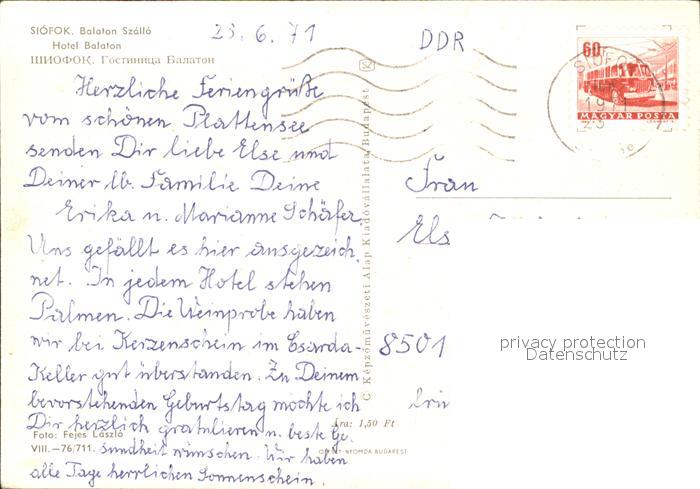 SIÓFOK. Balaton Szálló
Hotel Balaton
ШИОФОК. Гостиница Балатон
23.6.71
DDR
SZ
60f
SIÓFOK
1971
MAGYAR POSTA
Herzliche Feriengrüße
vom schönen Plattensee
senden Dir liebe Else und
Deiner lb. Familie Deine
Erika u. Marianne Schäfer.
Uns gefällt es hier ausgezeich
net. In jedem Hotel stehen
Palmen. Die Weinprobe haben
wir bei Kerzenschein im Csarda-
Keller gut überstanden. Zu Deinem
bevorstehenden Geburtstag möchte ich
Dir herzlich gratulieren u. beste Ge-
sundheit wünschen. Wir haben
alle Tage herrlichen Sonnenschein.
Foto: Fejes László
VIII.—76/711.
© Képzőművészeti Alap Kiadóvállalata, Budapest
Ára: 1,50 Ft
OFFSET-NYOMDA BUDAPEST
Frau
Els
8501
privacy protection
Datenschutz